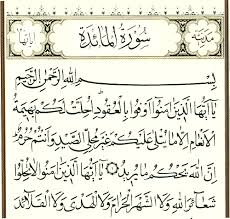 مدنية سُورَةُ المَائدة آياتها
بِسْمِ اللهِ الرَّحْمٰنِ الرَّحِيمِ
يَا أَيُّهَا الَّذِينَ آمَنُوا أَوْفُوا بِالْعُقُودِ أُحِلَّتْ لَكُمْ بَهِيمَةُ
الْأَنْعَامِ إِلَّا مَا يُتْلَى عَلَيْكُمْ غَيْرَ مُحِلِّي الصَّيْدِ وَأَنْتُمْ حُرُمٌ
إِنَّ اللهَ يَحْكُمُ مَا يُرِيدُ يَا أَيُّهَا الَّذِينَ آمَنُوا لَا تُحِلُّوا
شَعَائِرَ اللهِ وَلَا الشَّهْرَ الْحَرَامَ وَلَا الْهَدْيَ وَلَا الْقَلَائِدَ